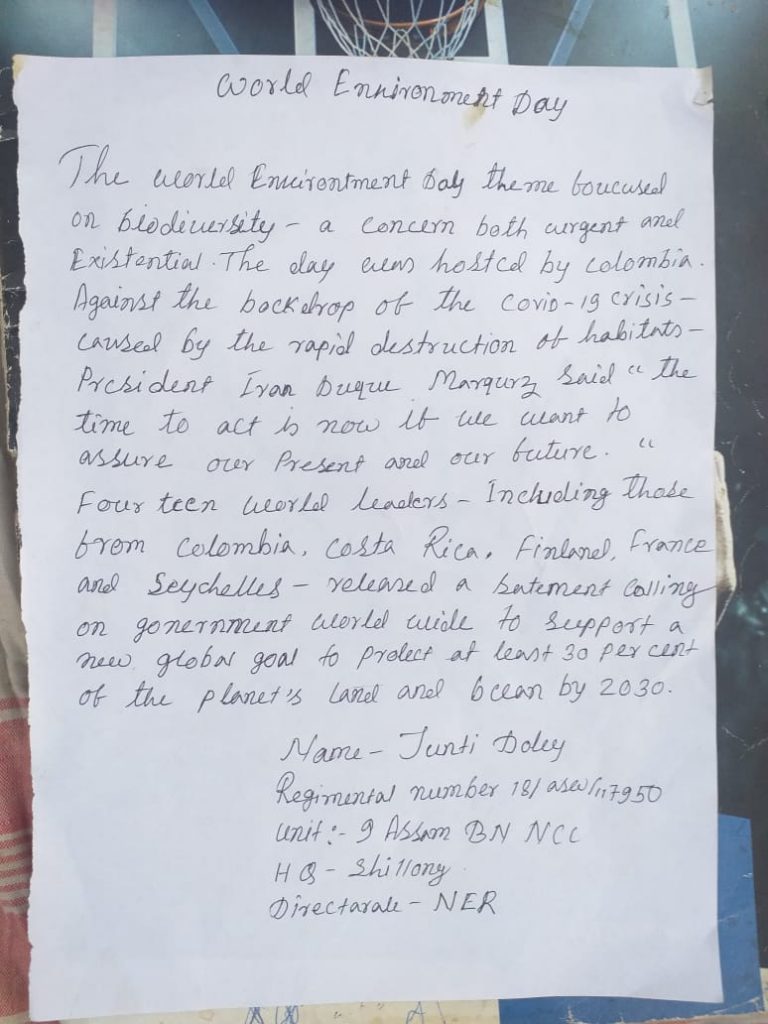 World Ennironment Day
The world Enuirontment Day theme boucused
on biodiuersity - a concern both urgent and
Existential. The day was hosted by colombia.
Against the backdrop of the covid-19 crisis -
caused by the rapid destruction of habitats -
President Ivan Duque Marqurz said “ the
time to act is now if we want to
assure our Present and our future. “
Four teen world leaders - Including those
from colombia, costa Rica, Finland, France
and Seychelles - released a satement calling
on gonernment world wide to support a
new global goal to protect at least 30 per cent
of the planet's land and ocean by 2030.
Name - Junti Doley
Regimental number 18/asw/117950
unit :- 9 Assam BN NCC
HQ - Shillong
Directarate - NER